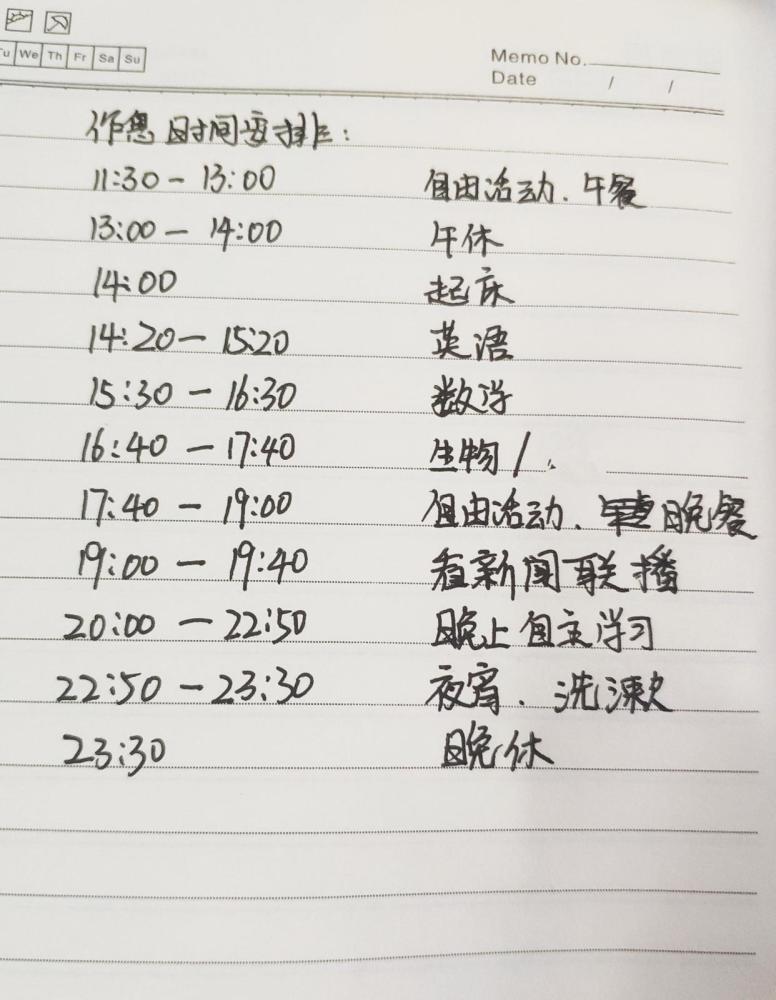 Tu We Th Fr Sa Su
Memo No.
Date / /
作息时间安排:
11:30 - 13:00 自由活动、午餐
13:00 - 14:00 午休
14:00 起床
14:20 - 15:20 英语
15:30 - 16:30 数学
16:40 - 17:40 生物/、
17:40 - 19:00 自由活动、晚餐
19:00 - 19:40 看新闻联播
20:00 - 22:50 晚上自主学习
22:50 - 23:30 夜宵、洗漱
23:30 晚休